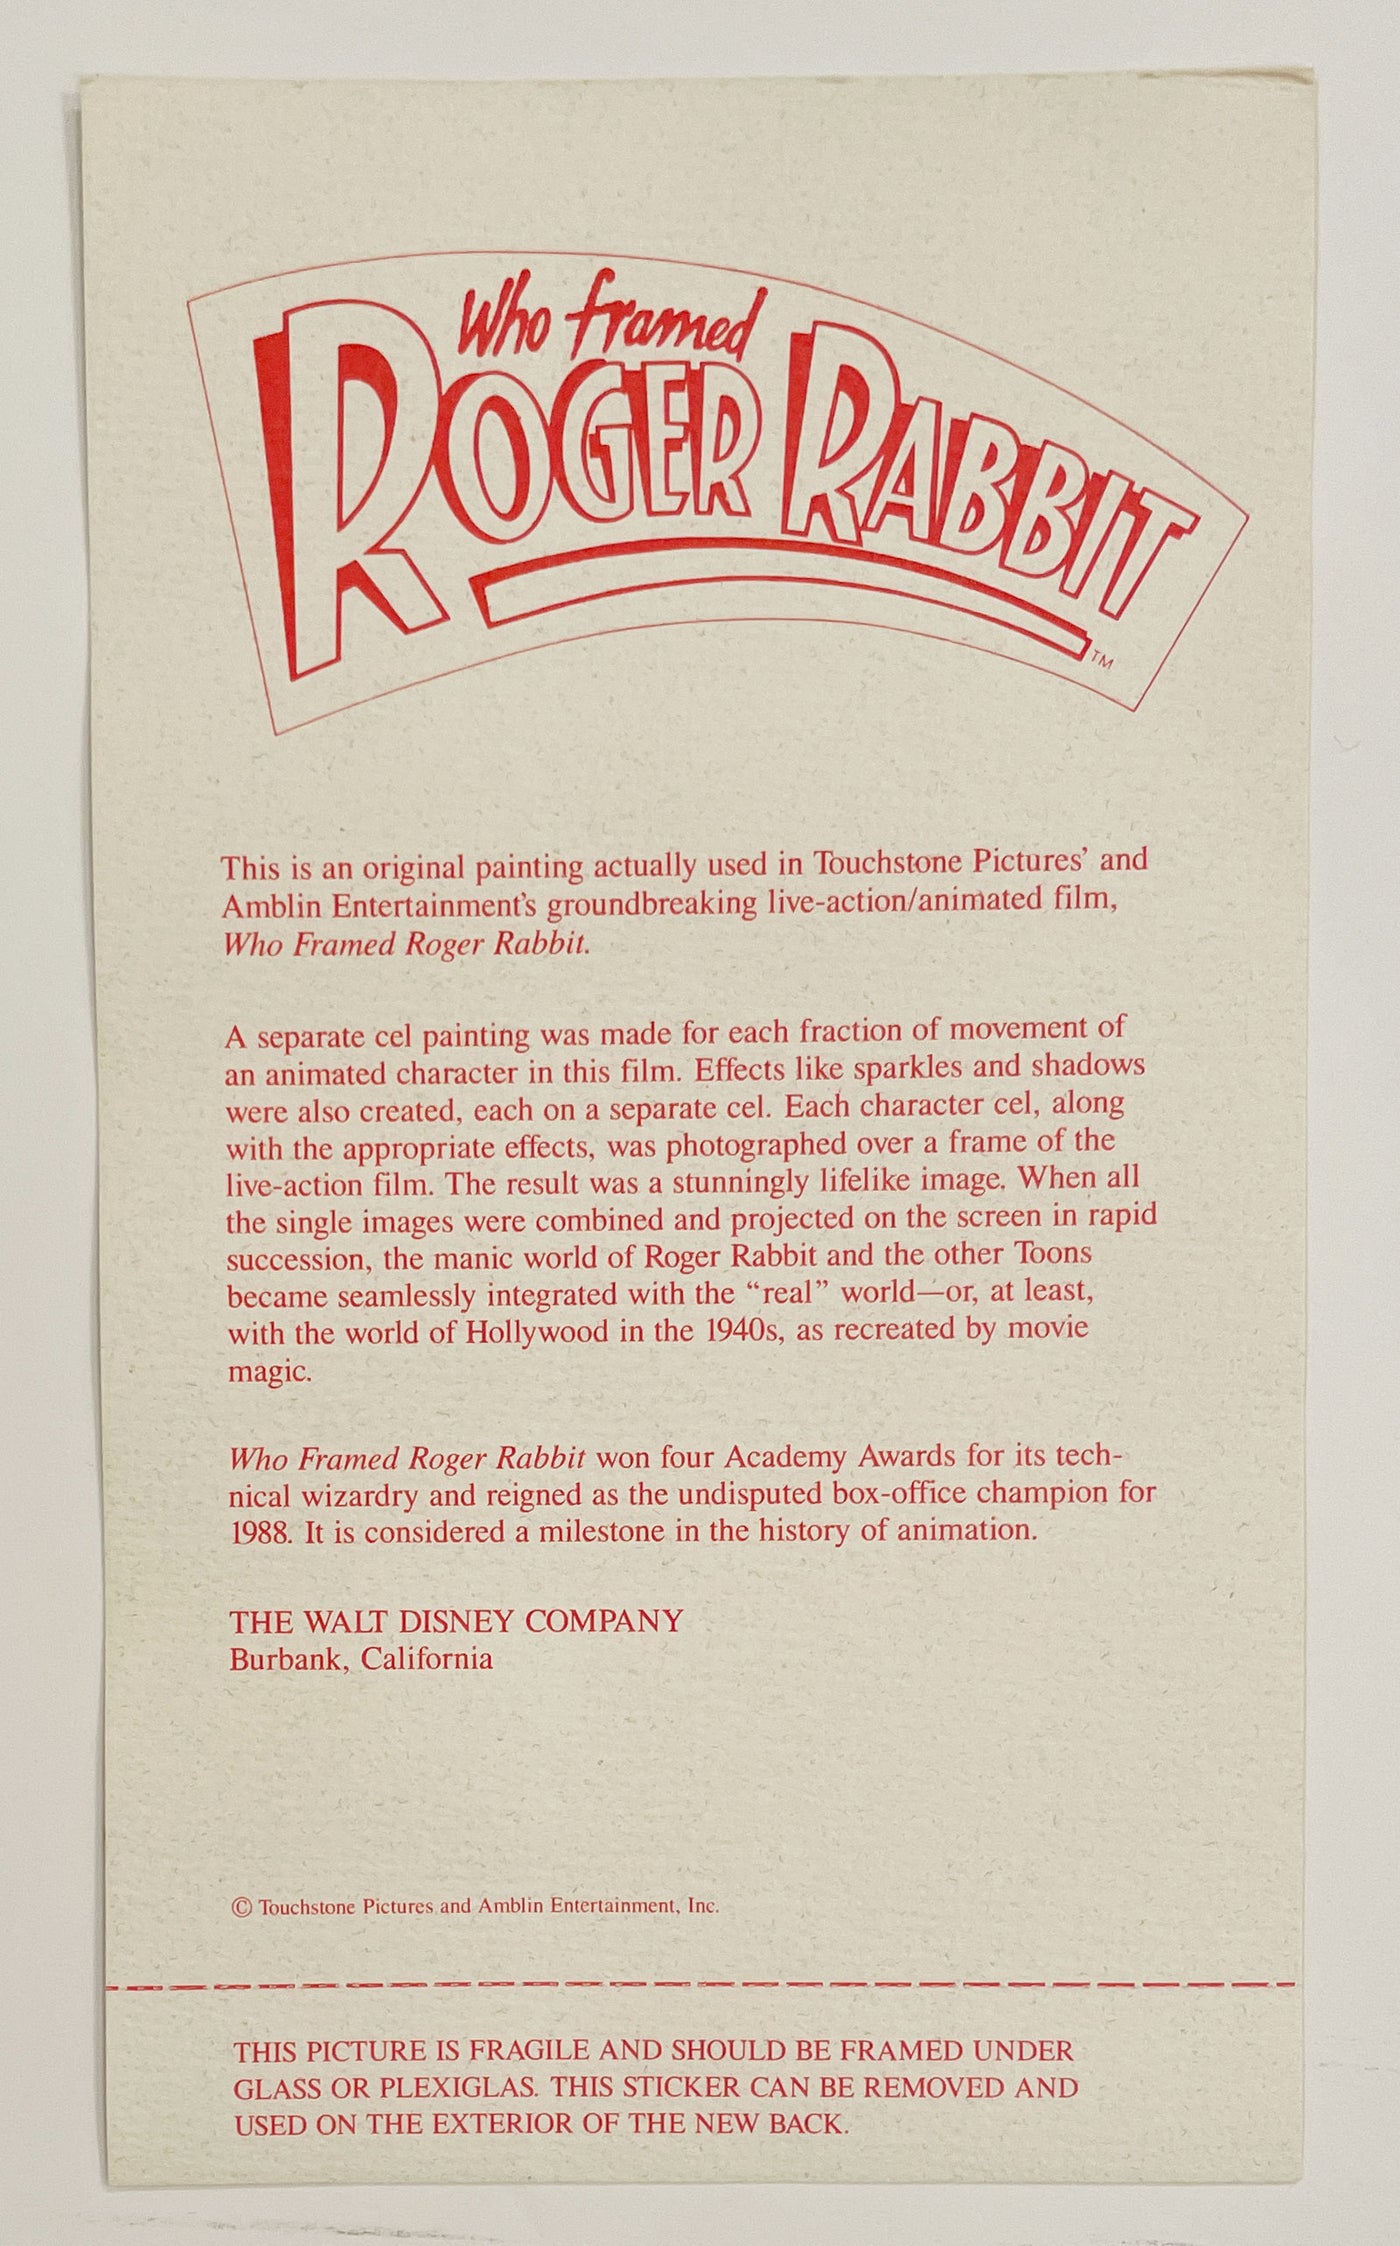 Who framed
ROGER RABBIT
TM
This is an original painting actually used in Touchstone Pictures’ and
Amblin Entertainment’s groundbreaking live-action/animated film,
Who Framed Roger Rabbit.
A separate cel painting was made for each fraction of movement of
an animated character in this film. Effects like sparkles and shadows
were also created, each on a separate cel. Each character cel, along
with the appropriate effects, was photographed over a frame of the
live-action film. The result was a stunningly lifelike image. When all
the single images were combined and projected on the screen in rapid
succession, the manic world of Roger Rabbit and the other Toons
became seamlessly integrated with the “real” world—or, at least,
with the world of Hollywood in the 1940s, as recreated by movie
magic.
Who Framed Roger Rabbit won four Academy Awards for its tech-
nical wizardry and reigned as the undisputed box-office champion for
1988. It is considered a milestone in the history of animation.
THE WALT DISNEY COMPANY
Burbank, California
© Touchstone Pictures and Amblin Entertainment, Inc.
THIS PICTURE IS FRAGILE AND SHOULD BE FRAMED UNDER
GLASS OR PLEXIGLAS. THIS STICKER CAN BE REMOVED AND
USED ON THE EXTERIOR OF THE NEW BACK.